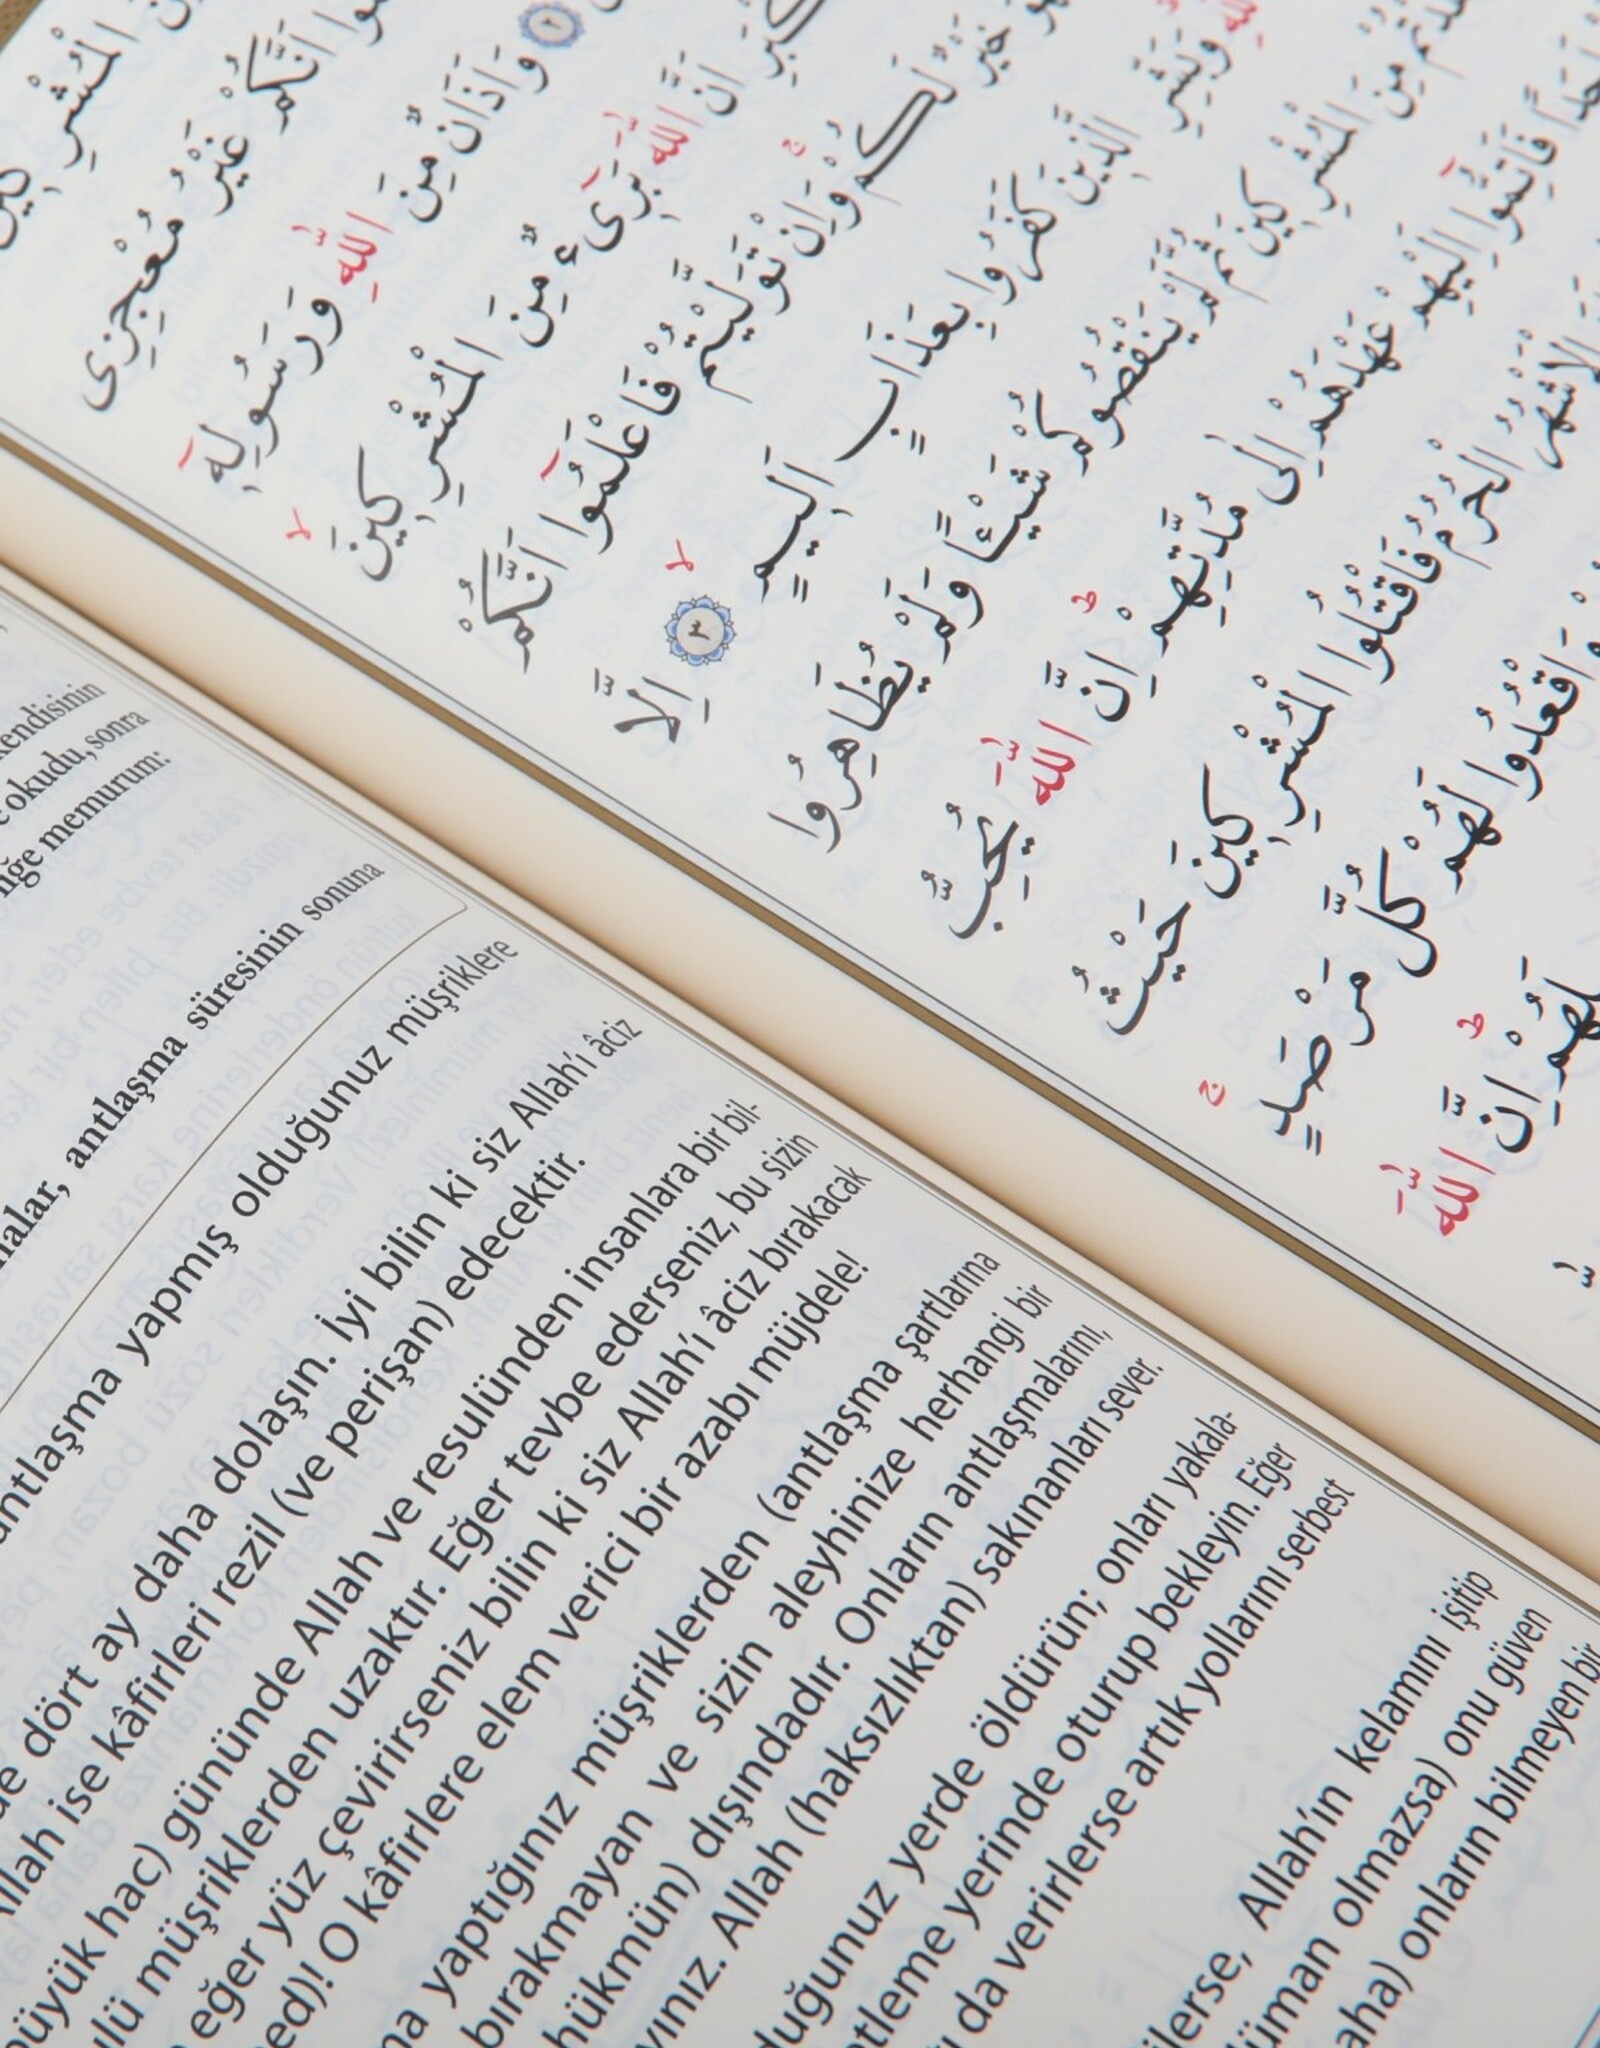 الْمُشْرِكِينَ
اَنَّكُمْ غَيْرُ مُعْجِزِى
٢ وَاَذَانٌ مِنَ اللّٰهِ وَرَسُولِهٓ
اَنَّ اللّٰهَ بَرٓىءٌ مِنَ الْمُشْرِكينَ
خَيْرٌ لَكُمْ وَاِنْ تَوَلَّيْتُمْ فَاعْلَمُٓوا اَنَّكُمْ
اللّٰهِ وَبَشِّرِ الَّذينَ كَفَرُوا بِعَذَابٍ اَليمٍ ٣ اِلَّا
مِنَ الْمُشْرِكينَ ثُمَّ لَمْ يَنْقُصُوكُمْ شَيْئًا وَلَمْ يُظَاهِرُوا
فَاَتِمُّٓوا اِلَيْهِمْ عَهْدَهُمْ اِلٰى مُدَّتِهِمْ اِنَّ اللّٰهَ يُحِبُّ
الْاَشْهُرُ الْحُرُمُ فَاقْتُلُوا الْمُشْرِكينَ حَيْثُ
وَاقْعُدُوا لَهُمْ كُلَّ مَرْصَدٍ
اِنَّ اللّٰهَ
kendisinin
okudu, sonra
memurum:
antlaşma süresinin sonuna
antlaşma yapmış olduğunuz müşriklere
dört ay daha dolaşın. İyi bilin ki siz Allah'ı âciz
Allah ise kâfirleri rezil (ve perişan) edecektir.
büyük hac) gününde Allah ve resulünden insanlara bir bil-
müşriklerden uzaktır. Eğer tevbe ederseniz, bu sizin
eğer yüz çevirirseniz bilin ki siz Allah'ı âciz bırakacak
O kâfirlere elem verici bir azabı müjdele!
yaptığınız müşriklerden (antlaşma şartlarına
bırakmayan ve sizin aleyhinize herhangi bir
hükmün) dışındadır. Onların antlaşmalarını,
Allah (haksızlıktan) sakınanları sever.
yerde öldürün; onları yakala-
yerinde oturup bekleyin. Eğer
da verirlerse artık yollarını serbest
Allah'ın kelamını işitip
olmazsa) onu güven
onların bilmeyen bir